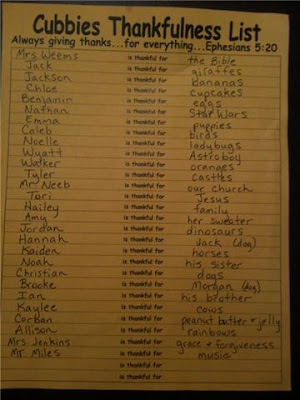 Cubbies Thankfulness List
Always giving thanks...for everything...Ephesians 5:20
Mrs Weems is thankful for the Bible
Jack is thankful for giraffes
Jackson is thankful for bananas
Chloe is thankful for cupcakes
Benjamin is thankful for eggs
Nathan is thankful for Star Wars
Emma is thankful for puppies
Caleb is thankful for birds
Noelle is thankful for ladybugs
Wyatt is thankful for Astroboy
Walker is thankful for oranges
Tyler is thankful for castles
Mr Neeb is thankful for our church
Tori is thankful for Jesus
Hailey is thankful for family
Amy is thankful for her sweater
Jordan is thankful for dinosaurs
Hannah is thankful for Jack (dog)
Kaiden is thankful for horses
Noah is thankful for his sister
Christian is thankful for dogs
Brooke is thankful for Morgan (dog)
Ian is thankful for his brother
Kaylee is thankful for cows
Corban is thankful for peanut butter + jelly
Allison is thankful for rainbows
Mrs Jenkins is thankful for grace + forgiveness
Mr. Miles is thankful for music
is thankful for
is thankful for